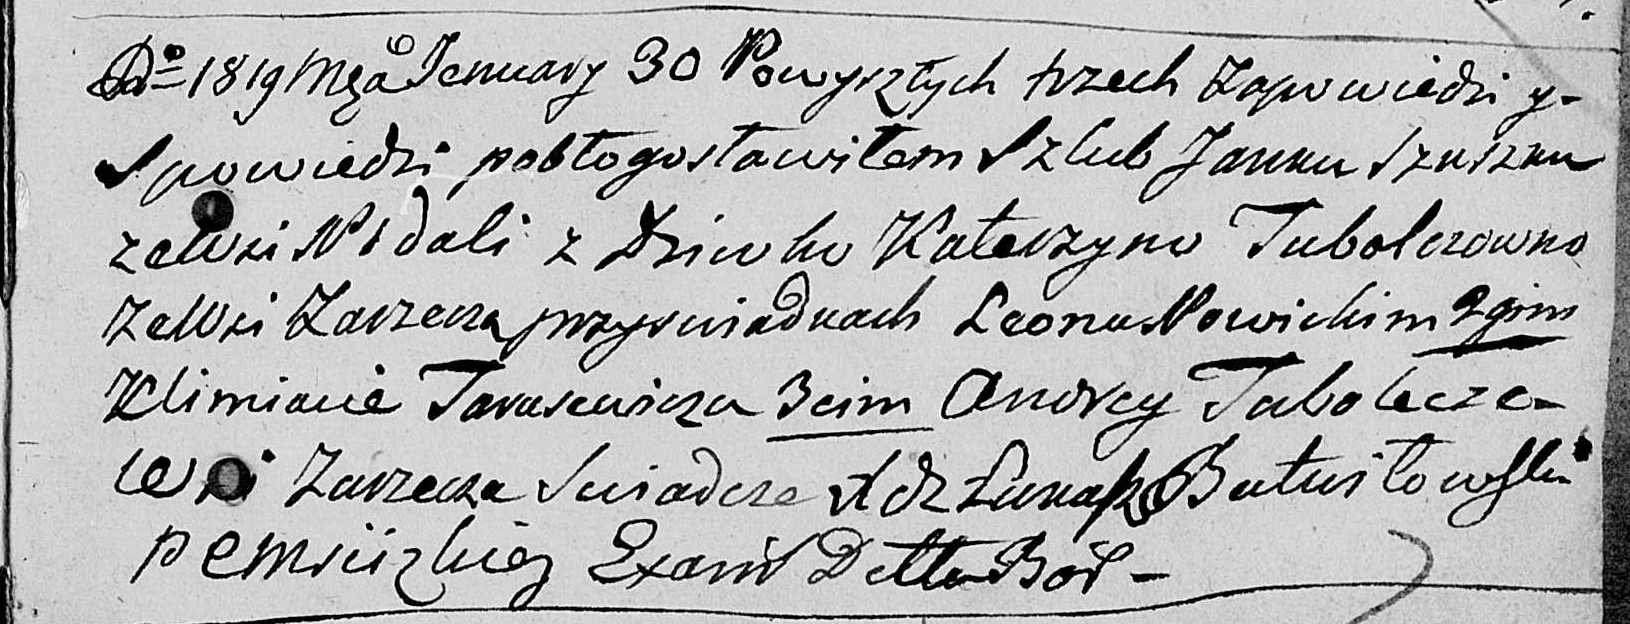 Do 1819 Mca Jenuary 30 Powyszłych trzech Zapowiedzi y-
Spowiedzi pobłogosławiłem Szlub Janku Szuszku
zewsi Nidali z Dziewko Katerzyno Tubolczowno
zewsi Zarzecza przyswiadkach Leonu Nowickim 2gim
Klimiacie Tarasewicza 3cim Andrey Tubolec ze-
wsi Zarzecza Swiadcze Xdz Łukasz
Exam Detto Bor-